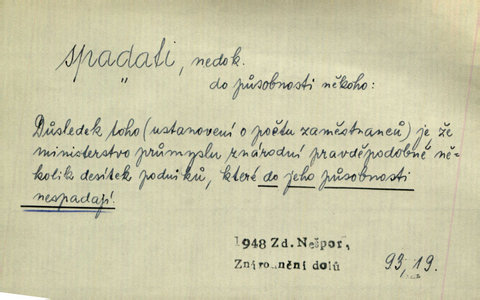 spadati, nedok.
" do působnosti někoho:
Důsledek toho (ustanovení o počtu zaměstnanců) je že
ministerstvo průmyslu znárodní pravděpodobně ně-
kolik desítek podniků, které do jeho působnosti
nespadají.
1948 Zd. Nešpor,
Znárodnění dolů 93, 19.